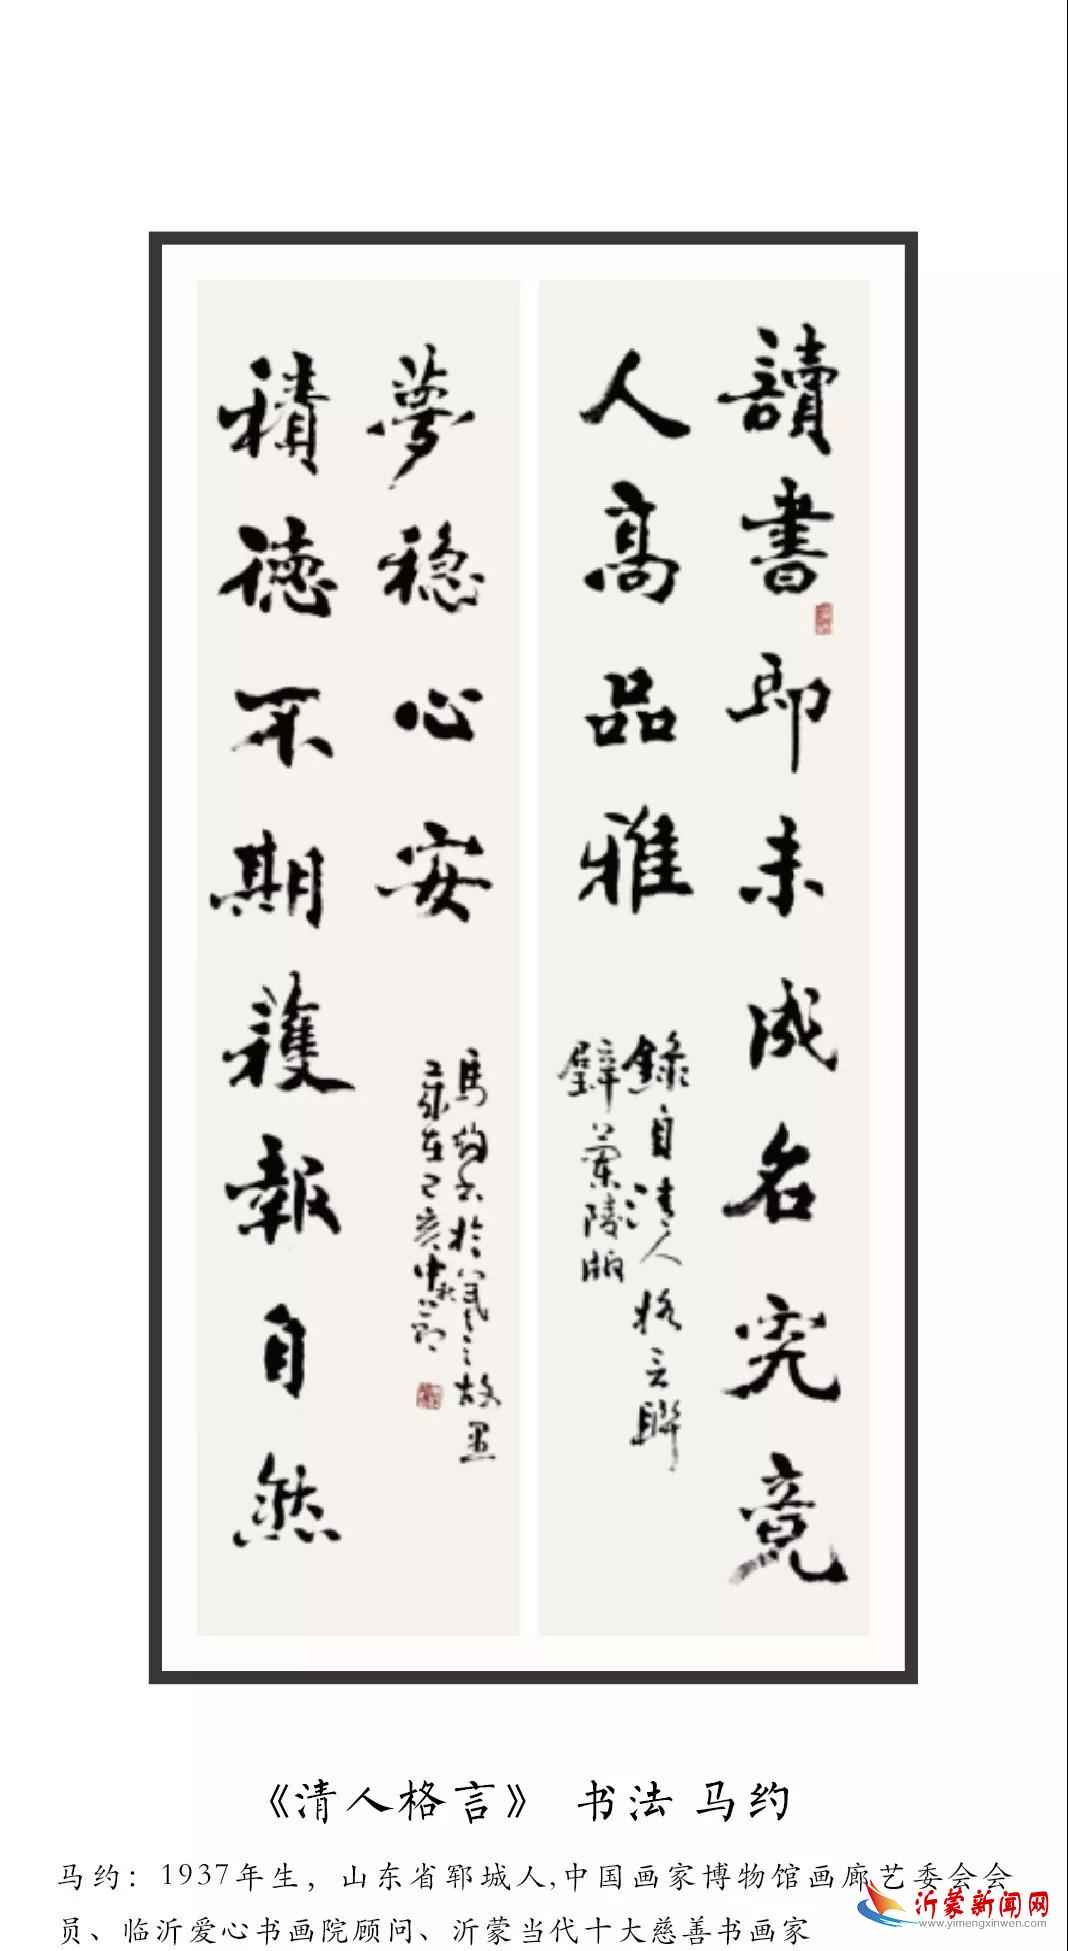 讀書即未成名究竟
人高品雅
錄自清人格言聯
蘭陵
積德不期獲報自然
夢稳心安
馬約書於
故里
歲在己亥中秋節
《清人格言》 书法 马约
马约：1937年生，山东省郓城人,中国画家博物馆画廊艺委会会
员、临沂爱心书画院顾问、沂蒙当代十大慈善书画家
沂蒙新闻网
www.yimengxinwen.com